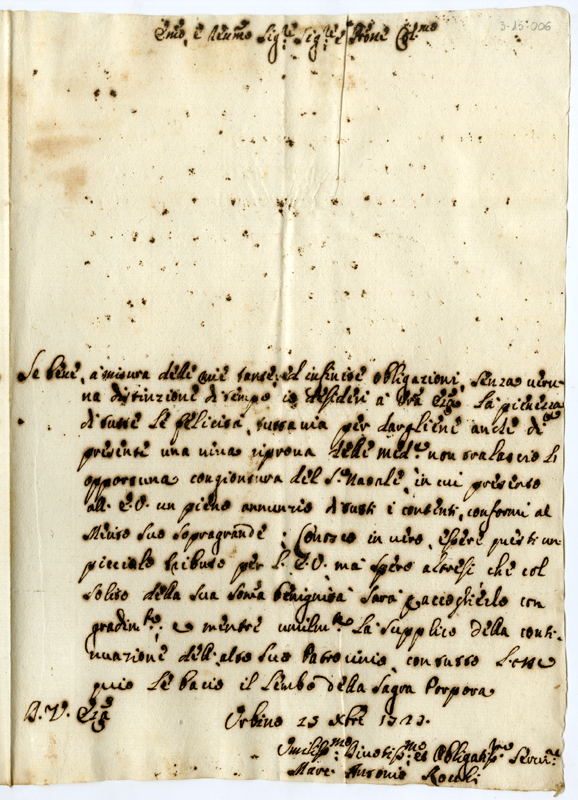 3-15-006
Emo, e Reumo Sig.re Sig.re e Prone Col.mo
Se bene, a misura delle mie tante, ed infinite obligazioni, senza veru-
na distinzione di tempo io desideri a Vra Eza la pienezza
di tutte le felicità, tuttavia per dargliene anche di
presente una viva riprova delle med.e non tralascio l'
opportuna congiontura del S. Natale, in cui presento
all' E.V. un pieno annunzio di tutti i contenti, conformi al
Merito suo sopragrande: Conosco in vero, essere questi un
picciolo tributo per l' E.V. ma spero altresi che col
solito della sua somma benignità sarà p accoglierlo con
gradim.to; e mentre umilm.te la supplico della conti-
nuazione dell' alto suo Patrocinio, con tutto l' osse
quio le bacio il Lembo della Sagra Porpora
D. V. Eza
Urbino 23 Xbre 1723.
Umiliss.mo Divotiss.mo et Obligatiss.mo Servit.re
Marc' Antonio